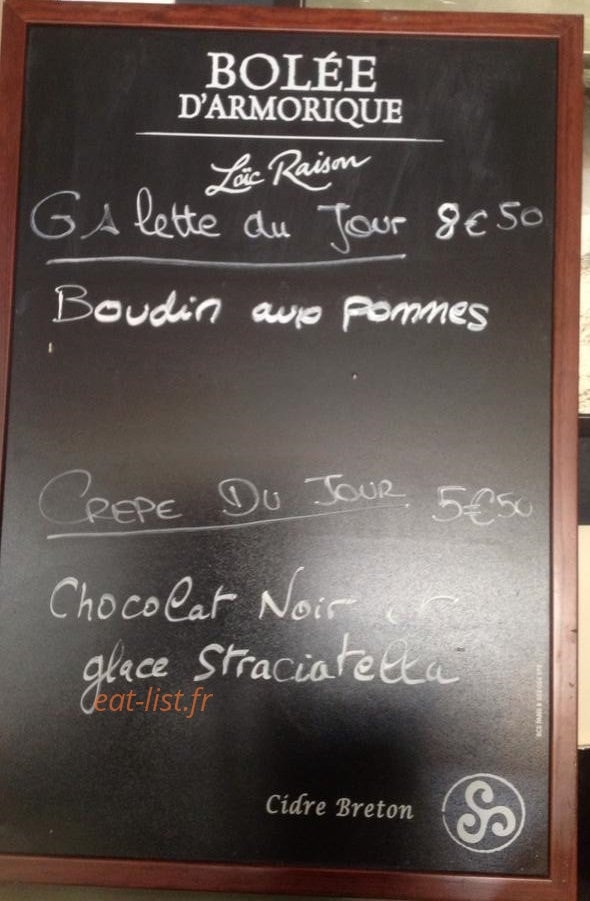 BOLÉE
D'ARMORIQUE
Loïc Raison
GAlette du Jour 8€50
Boudin aux Pommes
CREPE DU JOUR 5€50
Chocolat Noir
glace Straciatella
eat-list.fr
Cidre Breton